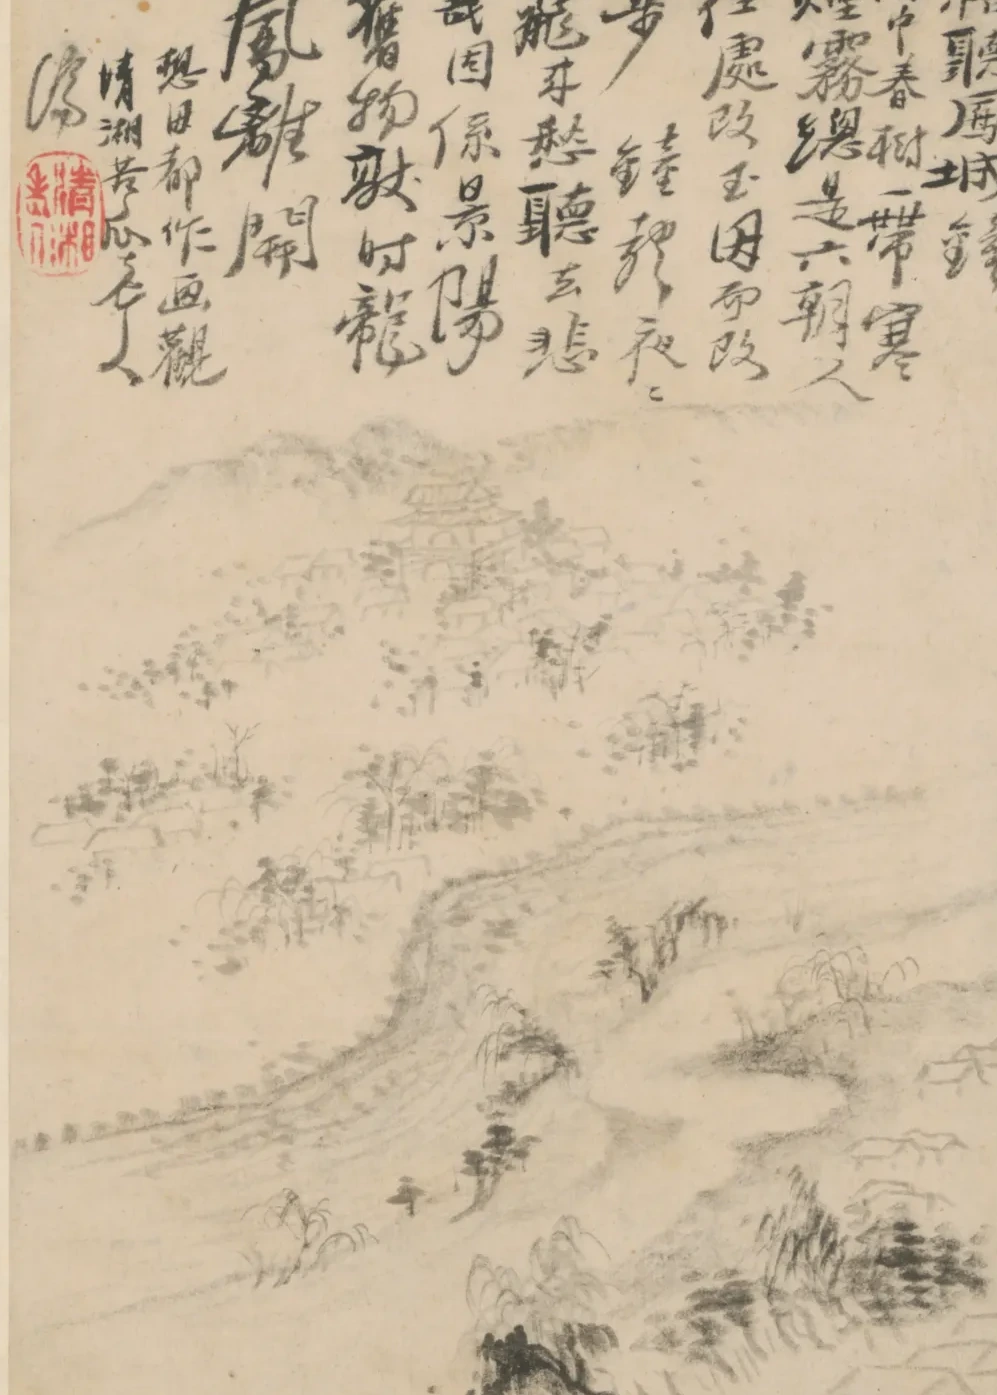 聽城鐘
中春樹一帶寒
煙霧總是六朝人
住處改玉因而改
步 鐘聲夜〻
來愁聽去悲
哉因係景陽
舊物獻时龍
鳳離開
想旧都作画觀
清湘苦瓜老人
濟
清湘老人